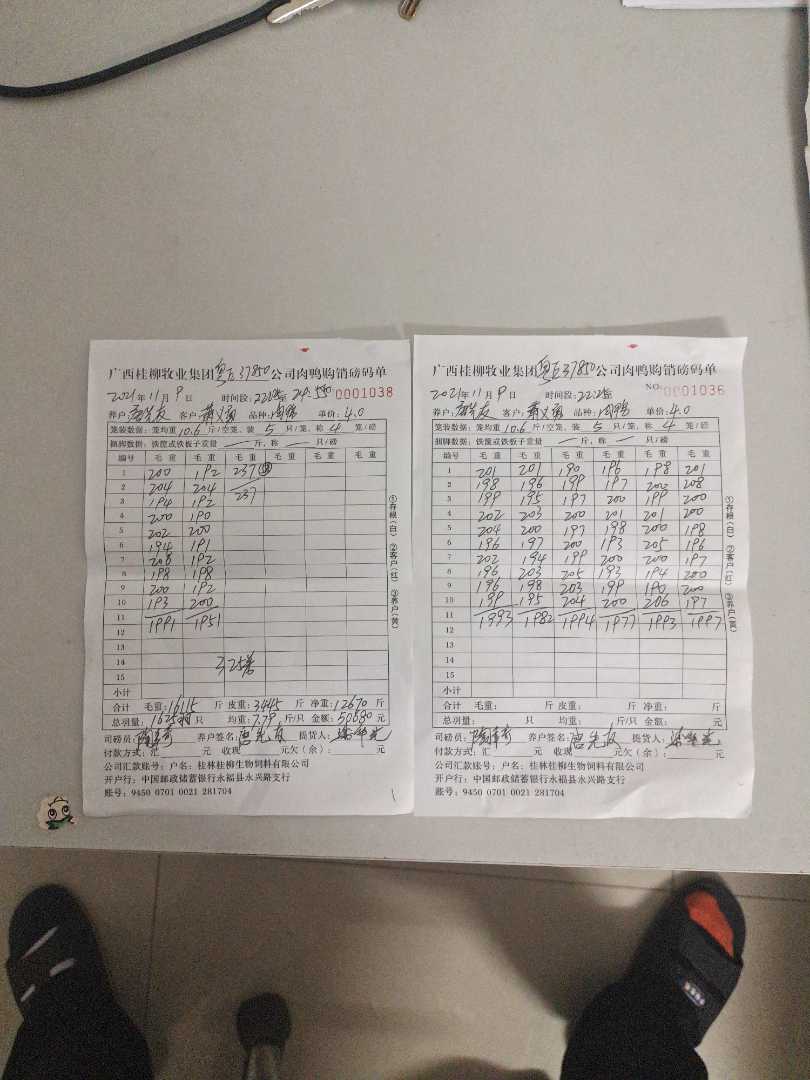 广西桂柳牧业集团粤E37850公司肉鸭购销磅码单
2021年11月9日 时间段: 0001038
养户: 客户: 品种:肉鸭 单价:4.0
笼装数据:笼均重10.6斤/空笼、装5只/笼、称4笼/磅
捆脚数据:铁篦或铁板子卖量一斤,称一只/磅
编号 毛重 毛重 毛重 毛重 毛重 毛重
1 200 192 237
2 204 204 237
3 194 192
4 200 190
5 202 200
6 194 191
7 208 192
8 198 198
9 200 192
10 193 200
11 1991 1951
12
13
14
15
小计
合计 毛重:16115斤 皮重:3445斤 净重:12670斤
总羽量:1625只 均重:7.79斤/只 金额:50680元
司磅员: 养户签名: 提货人:
付款方式:汇 元 收现 元欠(余): 元
公司汇款账号:户名:桂林桂柳生物饲料有限公司
开户行:中国邮政储蓄银行永福县永兴路支行
账号:9450 0701 0021 281704
①存根(白) ②客户(红) ③养户(黄)
广西桂柳牧业集团粤E37850公司肉鸭购销磅码单
2021年11月9日 时间段: NO 0001036
养户: 客户: 品种:肉鸭 单价:4.0
笼装数据:笼均重10.6斤/空笼、装5只/笼、称4笼/磅
捆脚数据:铁篦或铁板子卖量一斤,称一只/磅
编号 毛重 毛重 毛重 毛重 毛重 毛重
1 201 201 190 196 198 201
2 198 196 199 197 202 208
3 199 195 197 200 199 200
4 202 203 200 201 201 200
5 204 200 197 198 200 198
6 196 197 200 193 205 196
7 202 194 199 200 200 197
8 196 203 205 193 194 200
9 196 198 203 199 190 200
10 199 195 204 200 206 197
11 1993 1982 1994 1977 1993 1997
12
13
14
15
小计
合计 毛重: 斤 皮重: 斤 净重: 斤
总羽量: 只 均重: 斤/只 金额: 元
司磅员: 养户签名: 提货人:
付款方式:汇 元 收现 元欠(余): 元
公司汇款账号:户名:桂林桂柳生物饲料有限公司
开户行:中国邮政储蓄银行永福县永兴路支行
账号:9450 0701 0021 281704
①存根(白) ②客户(红) ③养户(黄)